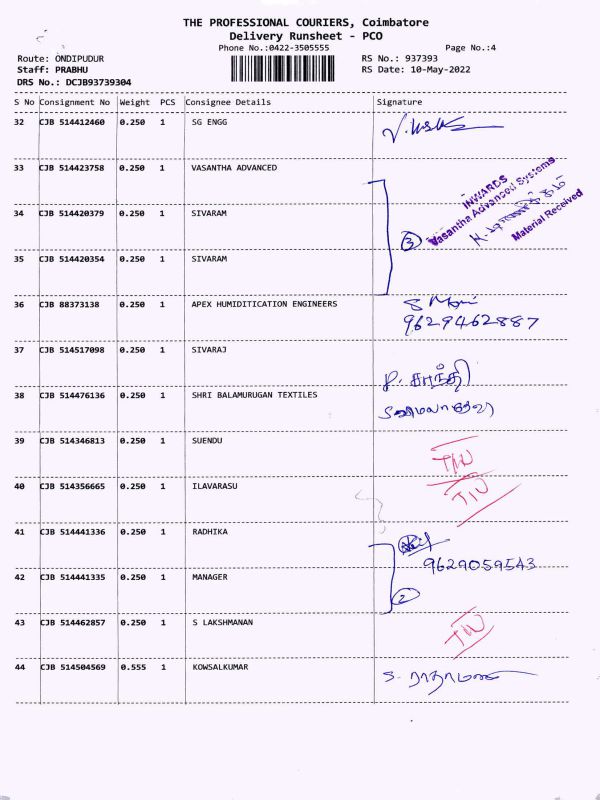 THE PROFESSIONAL COURIERS, Coimbatore
Delivery Runsheet - PCO
Phone No.:0422-3505555
Page No.:4
Route: ONDIPUDUR
RS No.: 937393
Staff: PRABHU
RS Date: 10-May-2022
DRS No.: DCJB93739304
S No Consignment No Weight PCS Consignee Details Signature
32 CJB 514412460 0.250 1 SG ENGG
33 CJB 514423758 0.250 1 VASANTHA ADVANCED
INWARDS
Vasantha Advanced Systems
Material Received
34 CJB 514420379 0.250 1 SIVARAM
3
35 CJB 514420354 0.250 1 SIVARAM
36 CJB 88373138 0.250 1 APEX HUMIDITICATION ENGINEERS
9629462887
37 CJB 514517098 0.250 1 SIVARAJ
P. சாந்தி
38 CJB 514476136 0.250 1 SHRI BALAMURUGAN TEXTILES
39 CJB 514346813 0.250 1 SUENDU
40 CJB 514356665 0.250 1 ILAVARASU
41 CJB 514441336 0.250 1 RADHIKA
9629059543
42 CJB 514441335 0.250 1 MANAGER
2
43 CJB 514462857 0.250 1 S LAKSHMANAN
44 CJB 514504569 0.555 1 KOWSALKUMAR